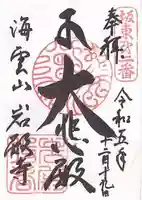 坂東第二番
奉拝
令和五年十二月十九日
大悲殿
海雲山
岩殿寺